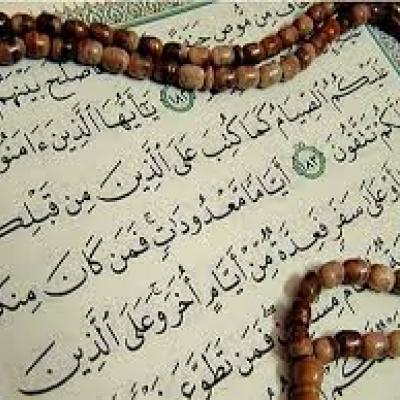 مِن مُّوصٍ
صْلَحَ بَيْنَهُمْ
١٨٢ يَٰٓأَيُّهَا ٱلَّذِينَ ءَامَنُو
عَلَيْكُمُ ٱلصِّيَامُ كَمَا كُتِبَ عَلَى ٱلَّذِينَ مِن قَبْلِكُ
لَّكُمْ تَتَّقُونَ ١٨٣ أَيَّامًا مَّعْدُودَٰتٍ فَمَن كَانَ مِنكُ
أَوْ عَلَىٰ سَفَرٍ فَعِدَّةٌ مِّنْ أَيَّامٍ أُخَرَ وَعَلَى ٱلَّذِينَ
فَمَن تَطَوَّعَ